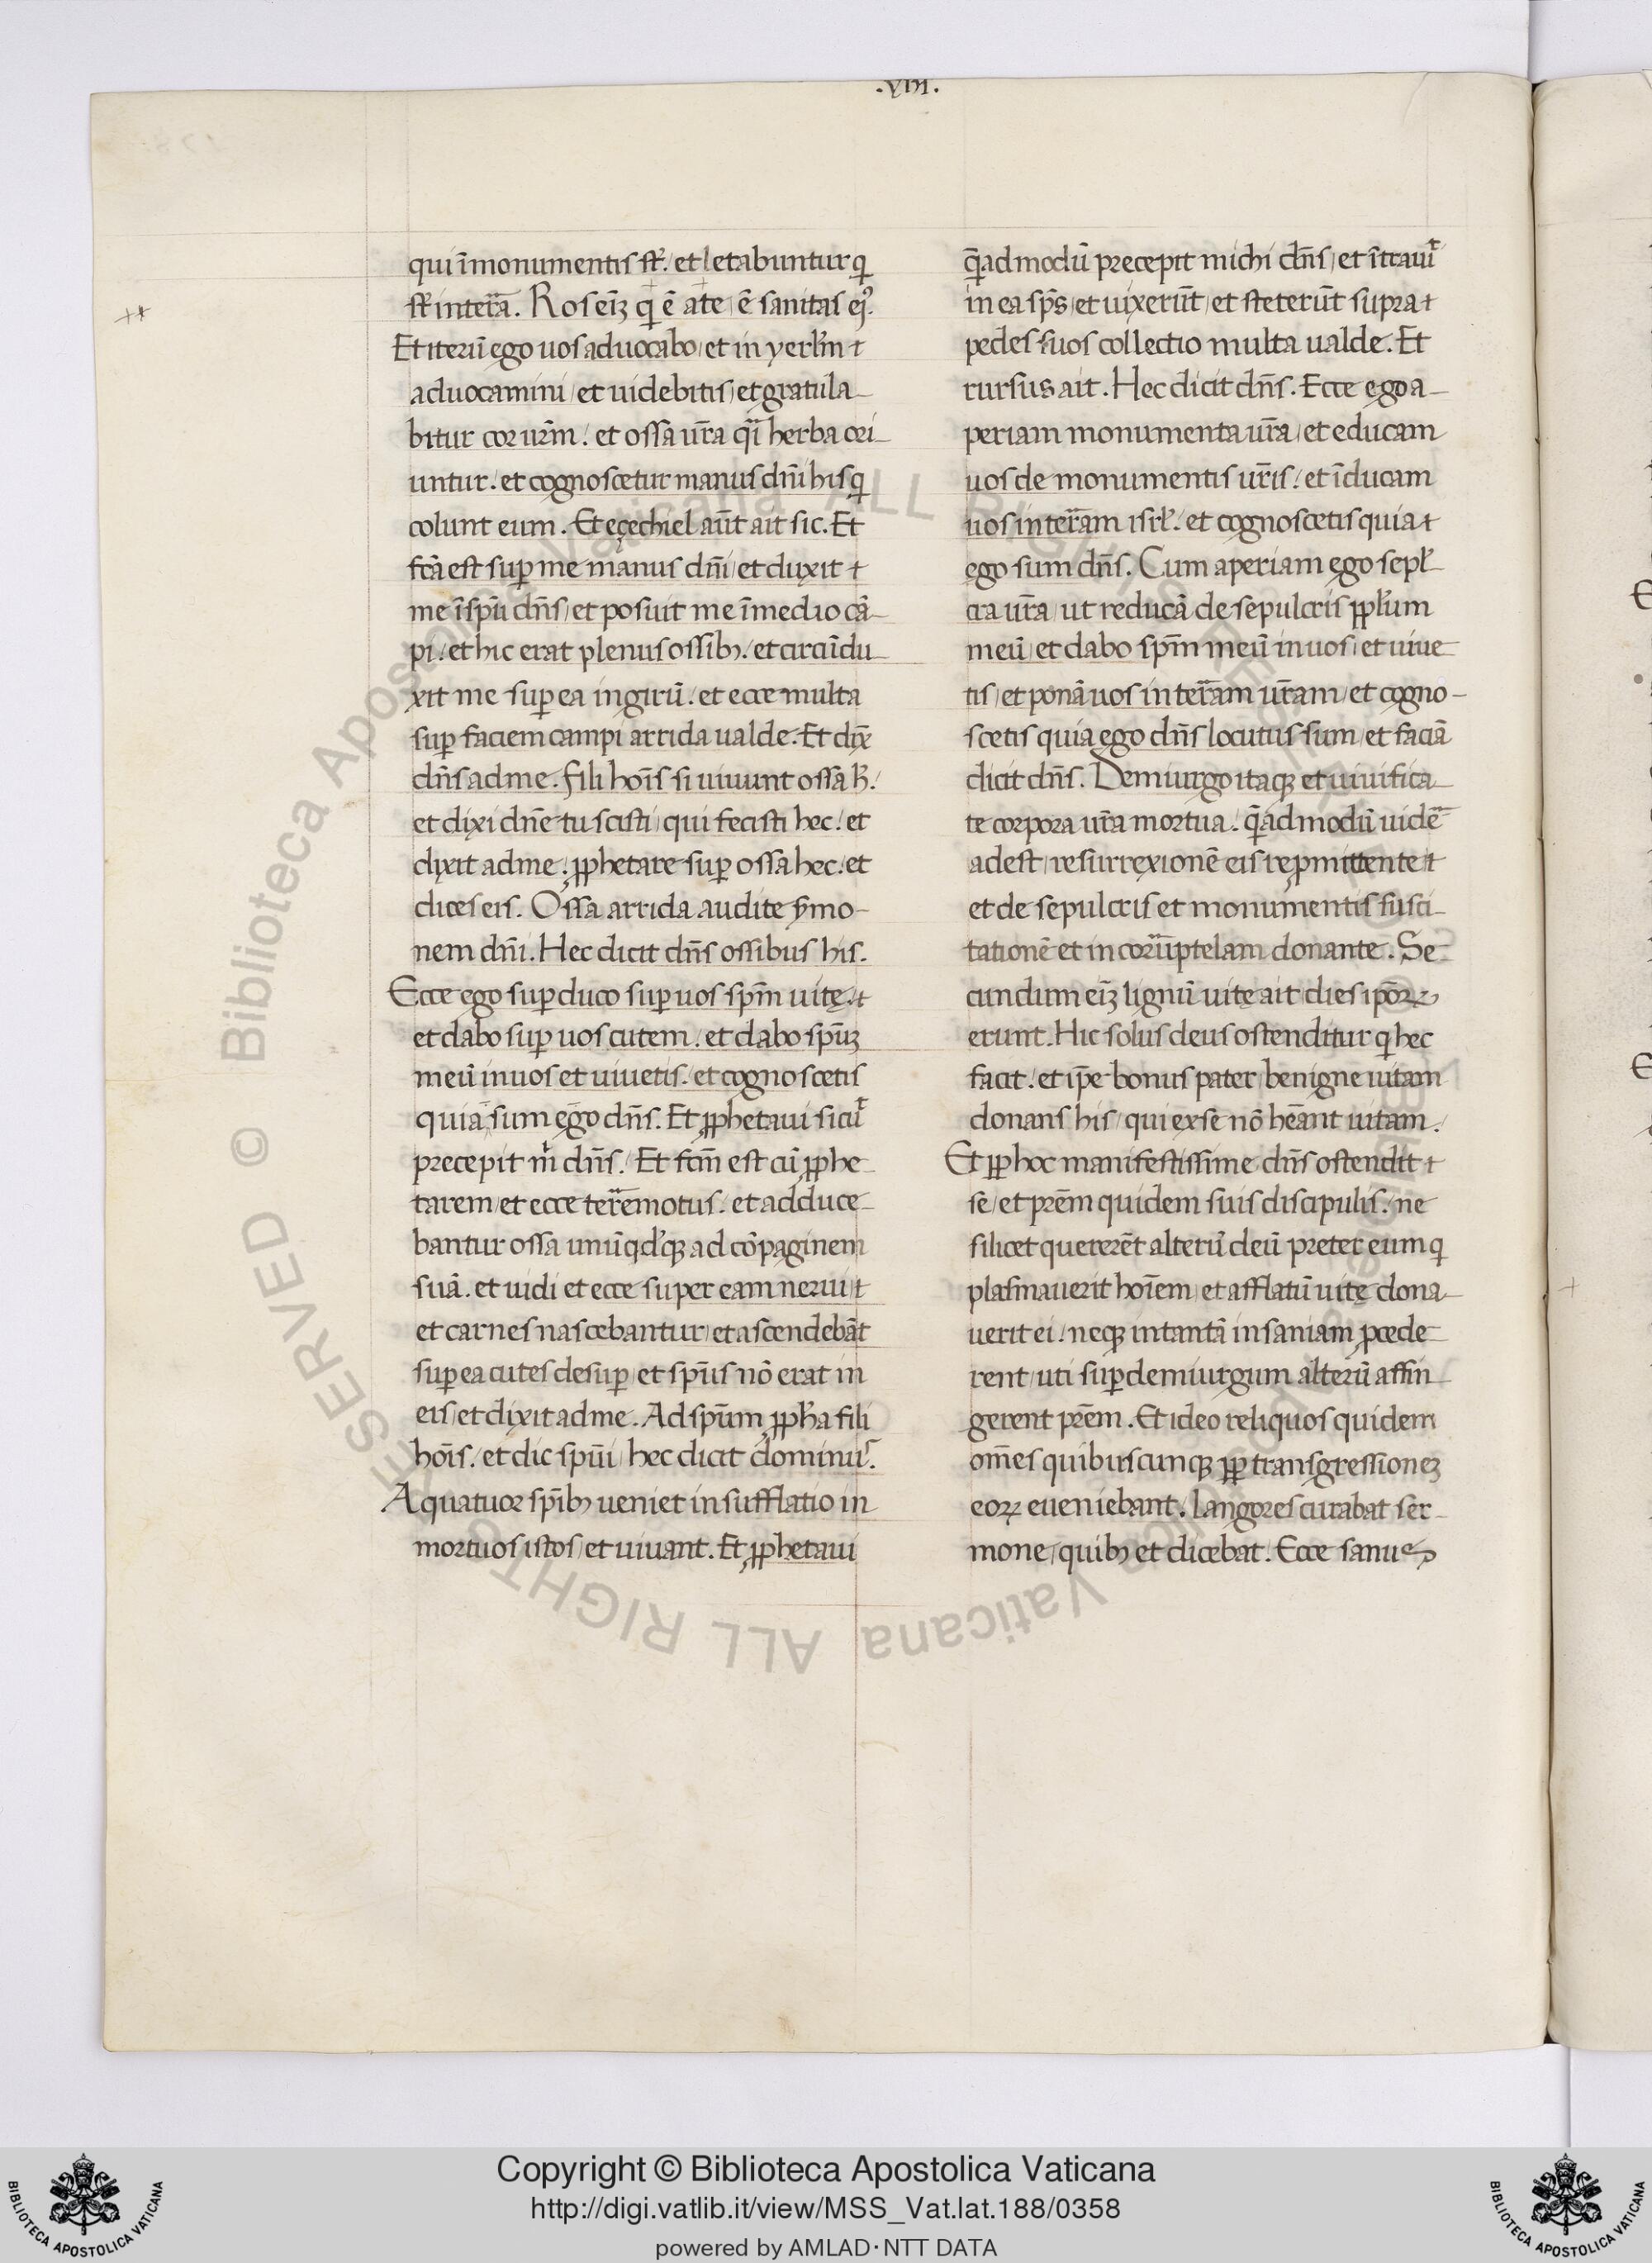 .VIII.
qui īmonumentis st̄. et letabuntur q̄
st̄ interā. Ros eīꝫ q̄ ē a te ē sanitas ej᾽.
Et iterū ego uos aduocabo, et in yerl̄m
aduocamini, et uidebitis, et gratula-
bitur cor ur̄m. et ossa ur̄a qͣi herba ori-
untur. et cognoscetur manus dn̄i his q̄
colunt eum. Et eçechiel aūt ait sic. Et
fc̄a est suꝑ me manus dn̄i, et duxit
me īsp̄u dn̄s, et posuit me īmedio cā-
pi. et hic erat plenus ossibꝫ. et circūdu-
xit me suꝑ ea ingirū. et ecce multa
suꝑ faciem campi arrida ualde. Et dix̄
dn̄s ad me. fili hoīs si uiuunt ossa h̄.
et dixi dn̄e tu scisti, qui fecisti hec. et
dixit ad me. ꝓphetare suꝑ ossa hec. et
dices eis. Ossa arrida audite ẜmo-
nem dn̄i. Hec dicit dn̄s ossibus his.
Ecce ego suꝑduco suꝑ uos sp̄m uitę.
et dabo suꝑ uos cutem. et dabo sp̄uꝫ
meū in uos et uiuetis. et cognoscetis
quia sum ego dn̄s. Et ꝓphetaui sicut
precepit m̄ dn̄s. Et fcm̄ est cū ꝓphe-
tarem, et ecce terremotus. et adduce-
bantur ossa unūqd᾽qꝫ ad cōpaginem
suā. et uidi et ecce super eam nerui
et carnes nascebantur, et ascendebāt
suꝑ ea cutes desuꝑ, et sp̄us nō erat in
eis, et dixit ad me. Ad sp̄um ꝓph̄a fili
hoīs. et dic sp̄ui, hec dicit dominus.
A quatuor sp̄ibꝫ ueniet insufflatio in
mortuos istos, et uiuant. Et ꝓphetaui
qͣ̄admodū precepit michi dn̄s, et ītrauit
in ea sp̄s, et uixerūt, et steterūt supra
pedes suos collectio multa ualde. Et
rursus ait. Hec dicit dn̄s. Ecce ego a-
periam monumenta ur̄a, et educam
uos de monumentis ur̄is. et īducam
uos interram isrl̄. et cognoscetis quia
ego sum dn̄s. Cum aperiam ego sepl̄-
cra ur̄a, ut reducā de sepulcris ppl̄um
meū, et dabo sp̄m meū in uos, et uiue-
tis, et ponā uos interram ur̄am, et cogno-
scetis quia ego dn̄s locutus sum, et faciā
dicit dn̄s. Demiurgo itaqꝫ et uiuifica-
te corpora ur̄a mortua. qͣ̄admodū uidē
adest, resurrexionē eis repmittente
et de sepulcris et monumentis susci-
tationē et in corruptelam donante. Se-
cundum eīꝫ lignū uitę ait dies ipōꝝ
erunt. Hic solus deus ostenditur q̄ hec
facit. et ip̄e bonus pater benigne uitam
donans his, qui ex se nō hēant uitam.
Et ꝓphoc manifestissime dn̄s ostendit
se, et pr̄em quidem suis discipulis. ne
silicet quererēt alterū deū preter eum q̄
plasmauerit hoīem, et afflatū uitę dona-
uerit ei. neqꝫ in tantā insaniam ꝓcede-
rent, uti suꝑ demiurgum alterū affin-
gerent pr̄em. Et ideo reliquos quidem
om̄es quibuscunqꝫ ꝓp transgressioneꝫ
eoꝝ eueniebant. langores curabat ser-
mone, quibꝫ et dicebat. Ecce sanus
Copyright © Biblioteca Apostolica Vaticana
http://digi.vatlib.it/view/MSS_Vat.lat.188/0358
powered by AMLAD·NTT DATA